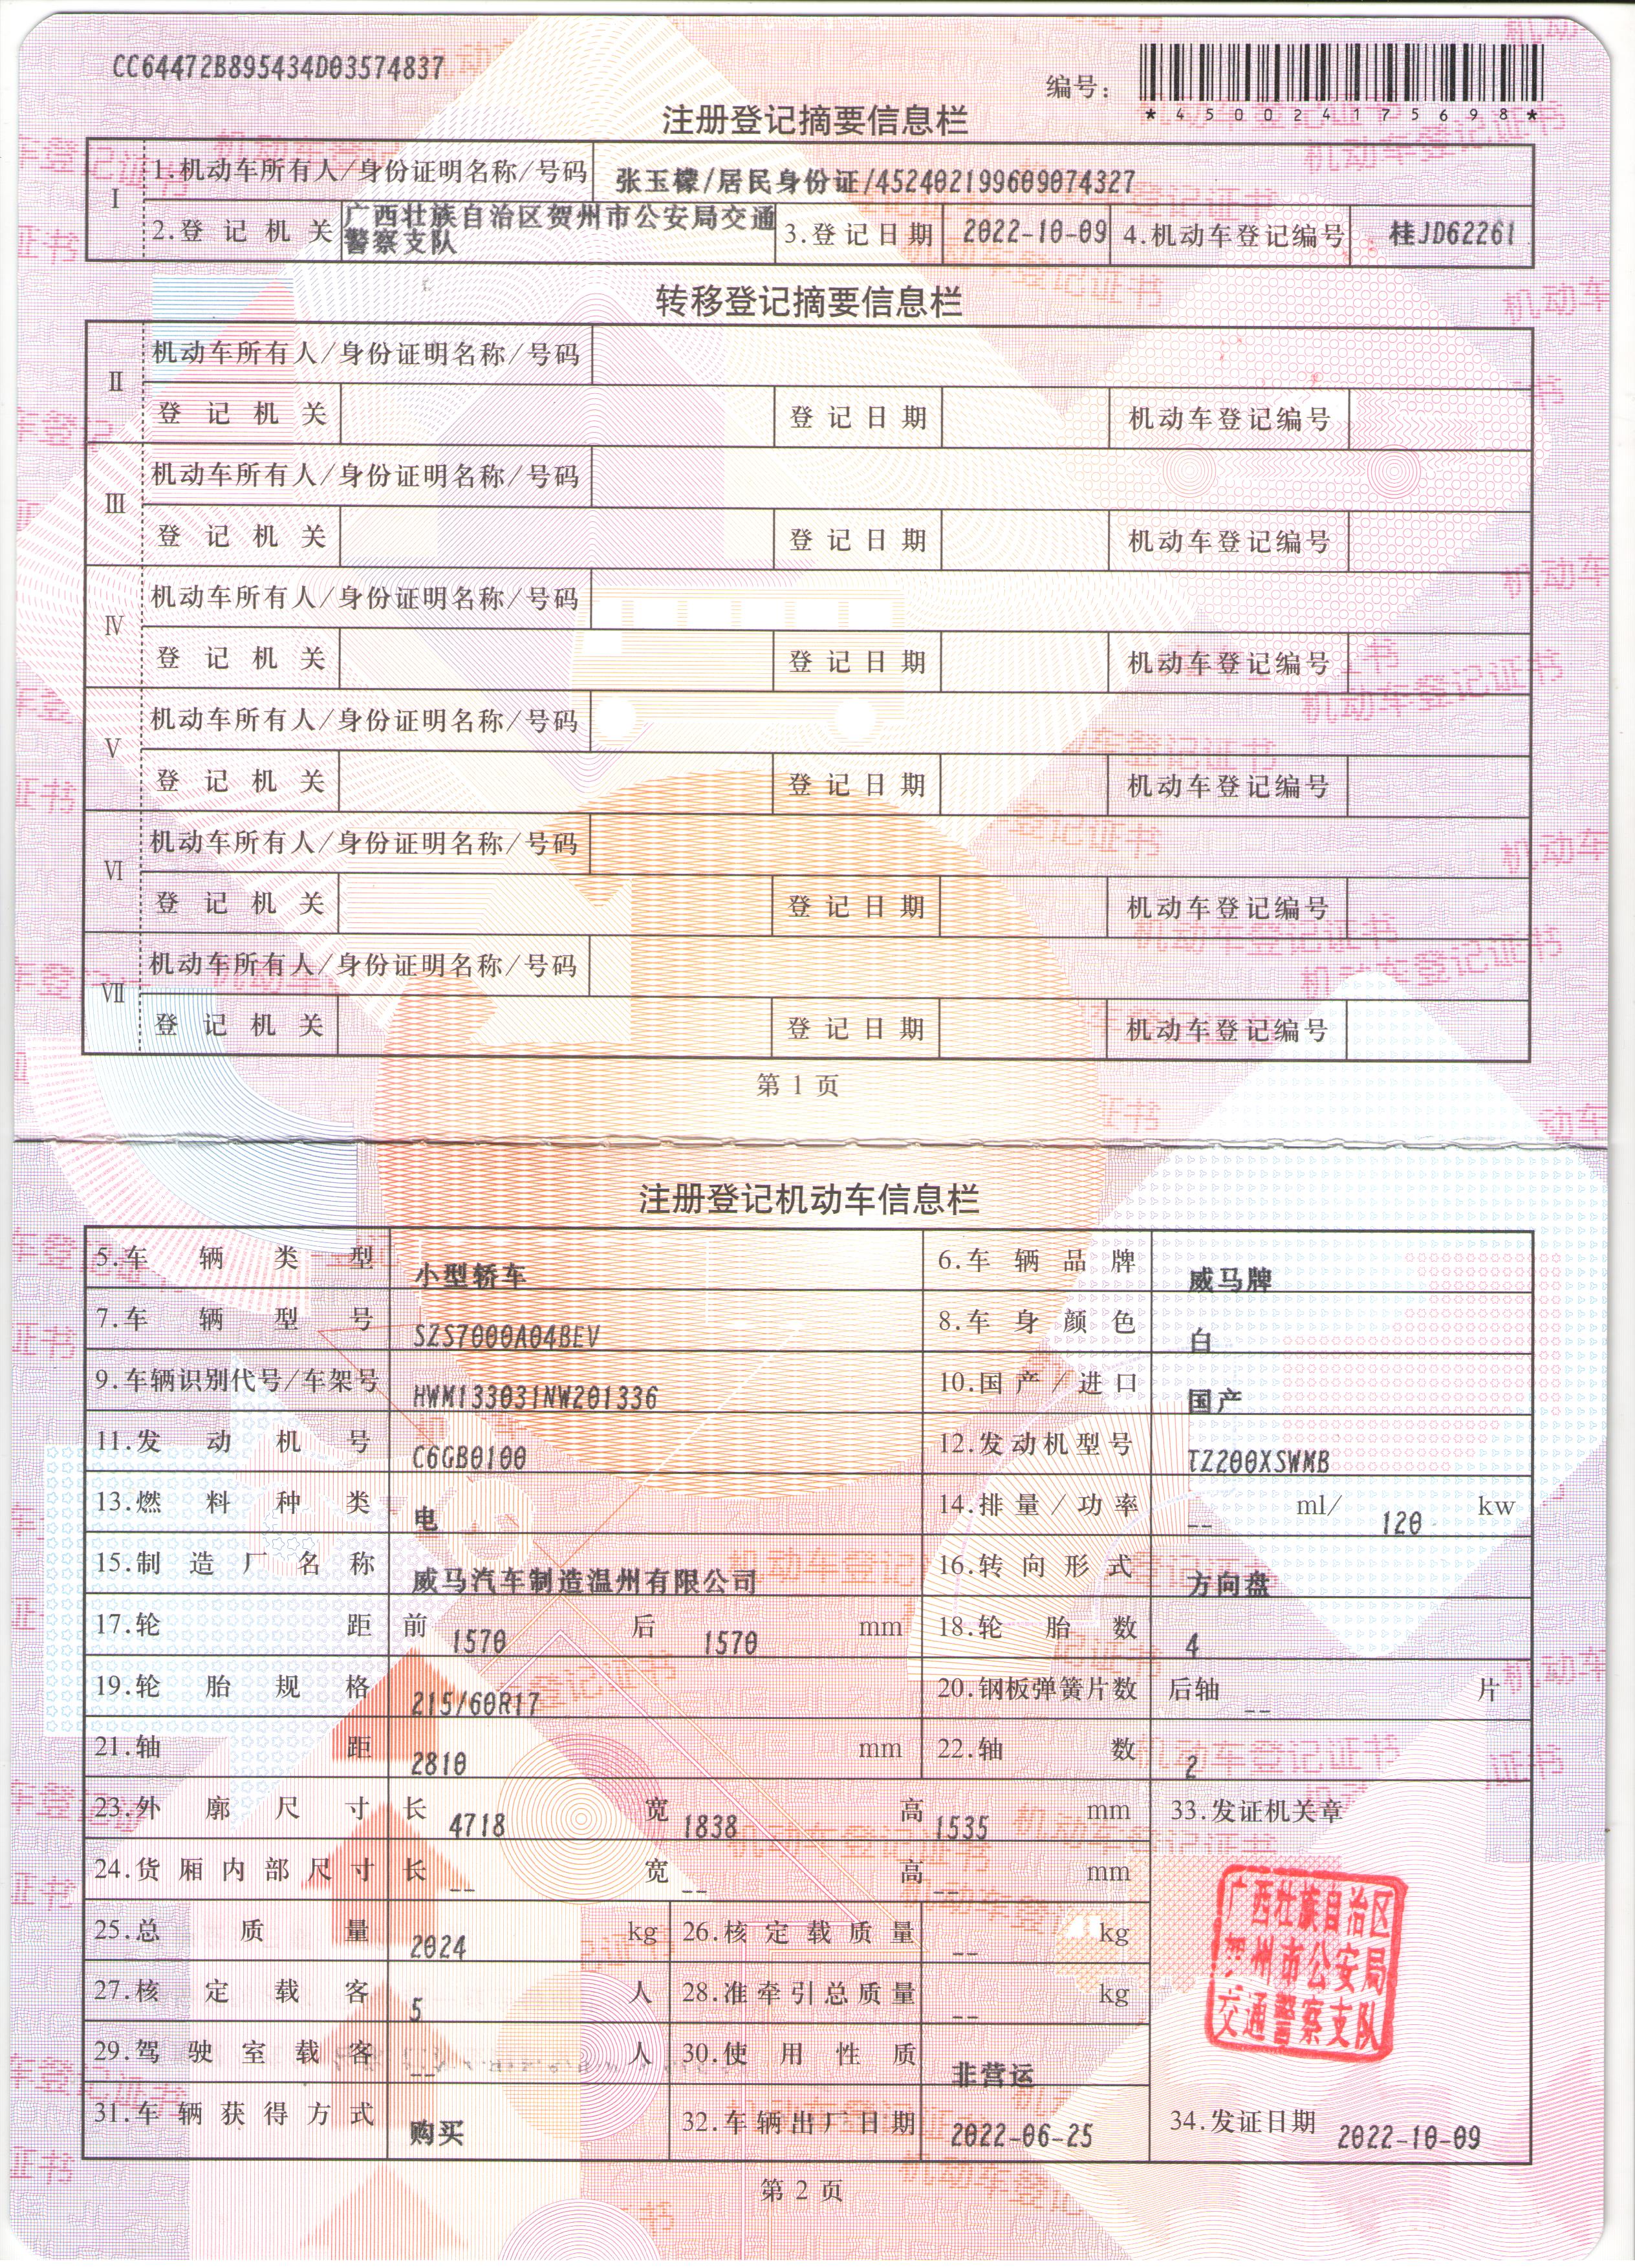 CC64472B895434D03574837
编号：
*450024175698*
注册登记摘要信息栏
I
1.机动车所有人/身份证明名称/号码 张玉檬/居民身份证/452402199609074327
2.登记机关 广西壮族自治区贺州市公安局交通警察支队 3.登记日期 2022-10-09 4.机动车登记编号 桂JD62261
转移登记摘要信息栏
II
机动车所有人/身份证明名称/号码
登记机关 登记日期 机动车登记编号
III
机动车所有人/身份证明名称/号码
登记机关 登记日期 机动车登记编号
IV
机动车所有人/身份证明名称/号码
登记机关 登记日期 机动车登记编号
V
机动车所有人/身份证明名称/号码
登记机关 登记日期 机动车登记编号
VI
机动车所有人/身份证明名称/号码
登记机关 登记日期 机动车登记编号
VII
机动车所有人/身份证明名称/号码
登记机关 登记日期 机动车登记编号
第 1 页
注册登记机动车信息栏
5.车辆类型 小型轿车 6.车辆品牌 威马牌
7.车辆型号 SZS7000A04BEV 8.车身颜色 白
9.车辆识别代号/车架号 HWM133031NW201336 10.国产/进口 国产
11.发动机号 C6GB0100 12.发动机型号 TZ200XSWMB
13.燃料种类 电 14.排量/功率 -- ml/ 120 kw
15.制造厂名称 威马汽车制造温州有限公司 16.转向形式 方向盘
17.轮距 前 1570 后 1570 mm 18.轮胎数 4
19.轮胎规格 215/60R17 20.钢板弹簧片数 后轴 -- 片
21.轴距 2810 mm 22.轴数 2
23.外廓尺寸 长 4718 宽 1838 高 1535 mm 33.发证机关章
24.货厢内部尺寸 长 -- 宽 -- 高 -- mm
广西壮族自治区
贺州市公安局
交通警察支队
25.总质量 2024 kg 26.核定载质量 -- kg
27.核定载客 5 人 28.准牵引总质量 -- kg
29.驾驶室载客 -- 人 30.使用性质 非营运
31.车辆获得方式 购买 32.车辆出厂日期 2022-06-25 34.发证日期 2022-10-09
第 2 页